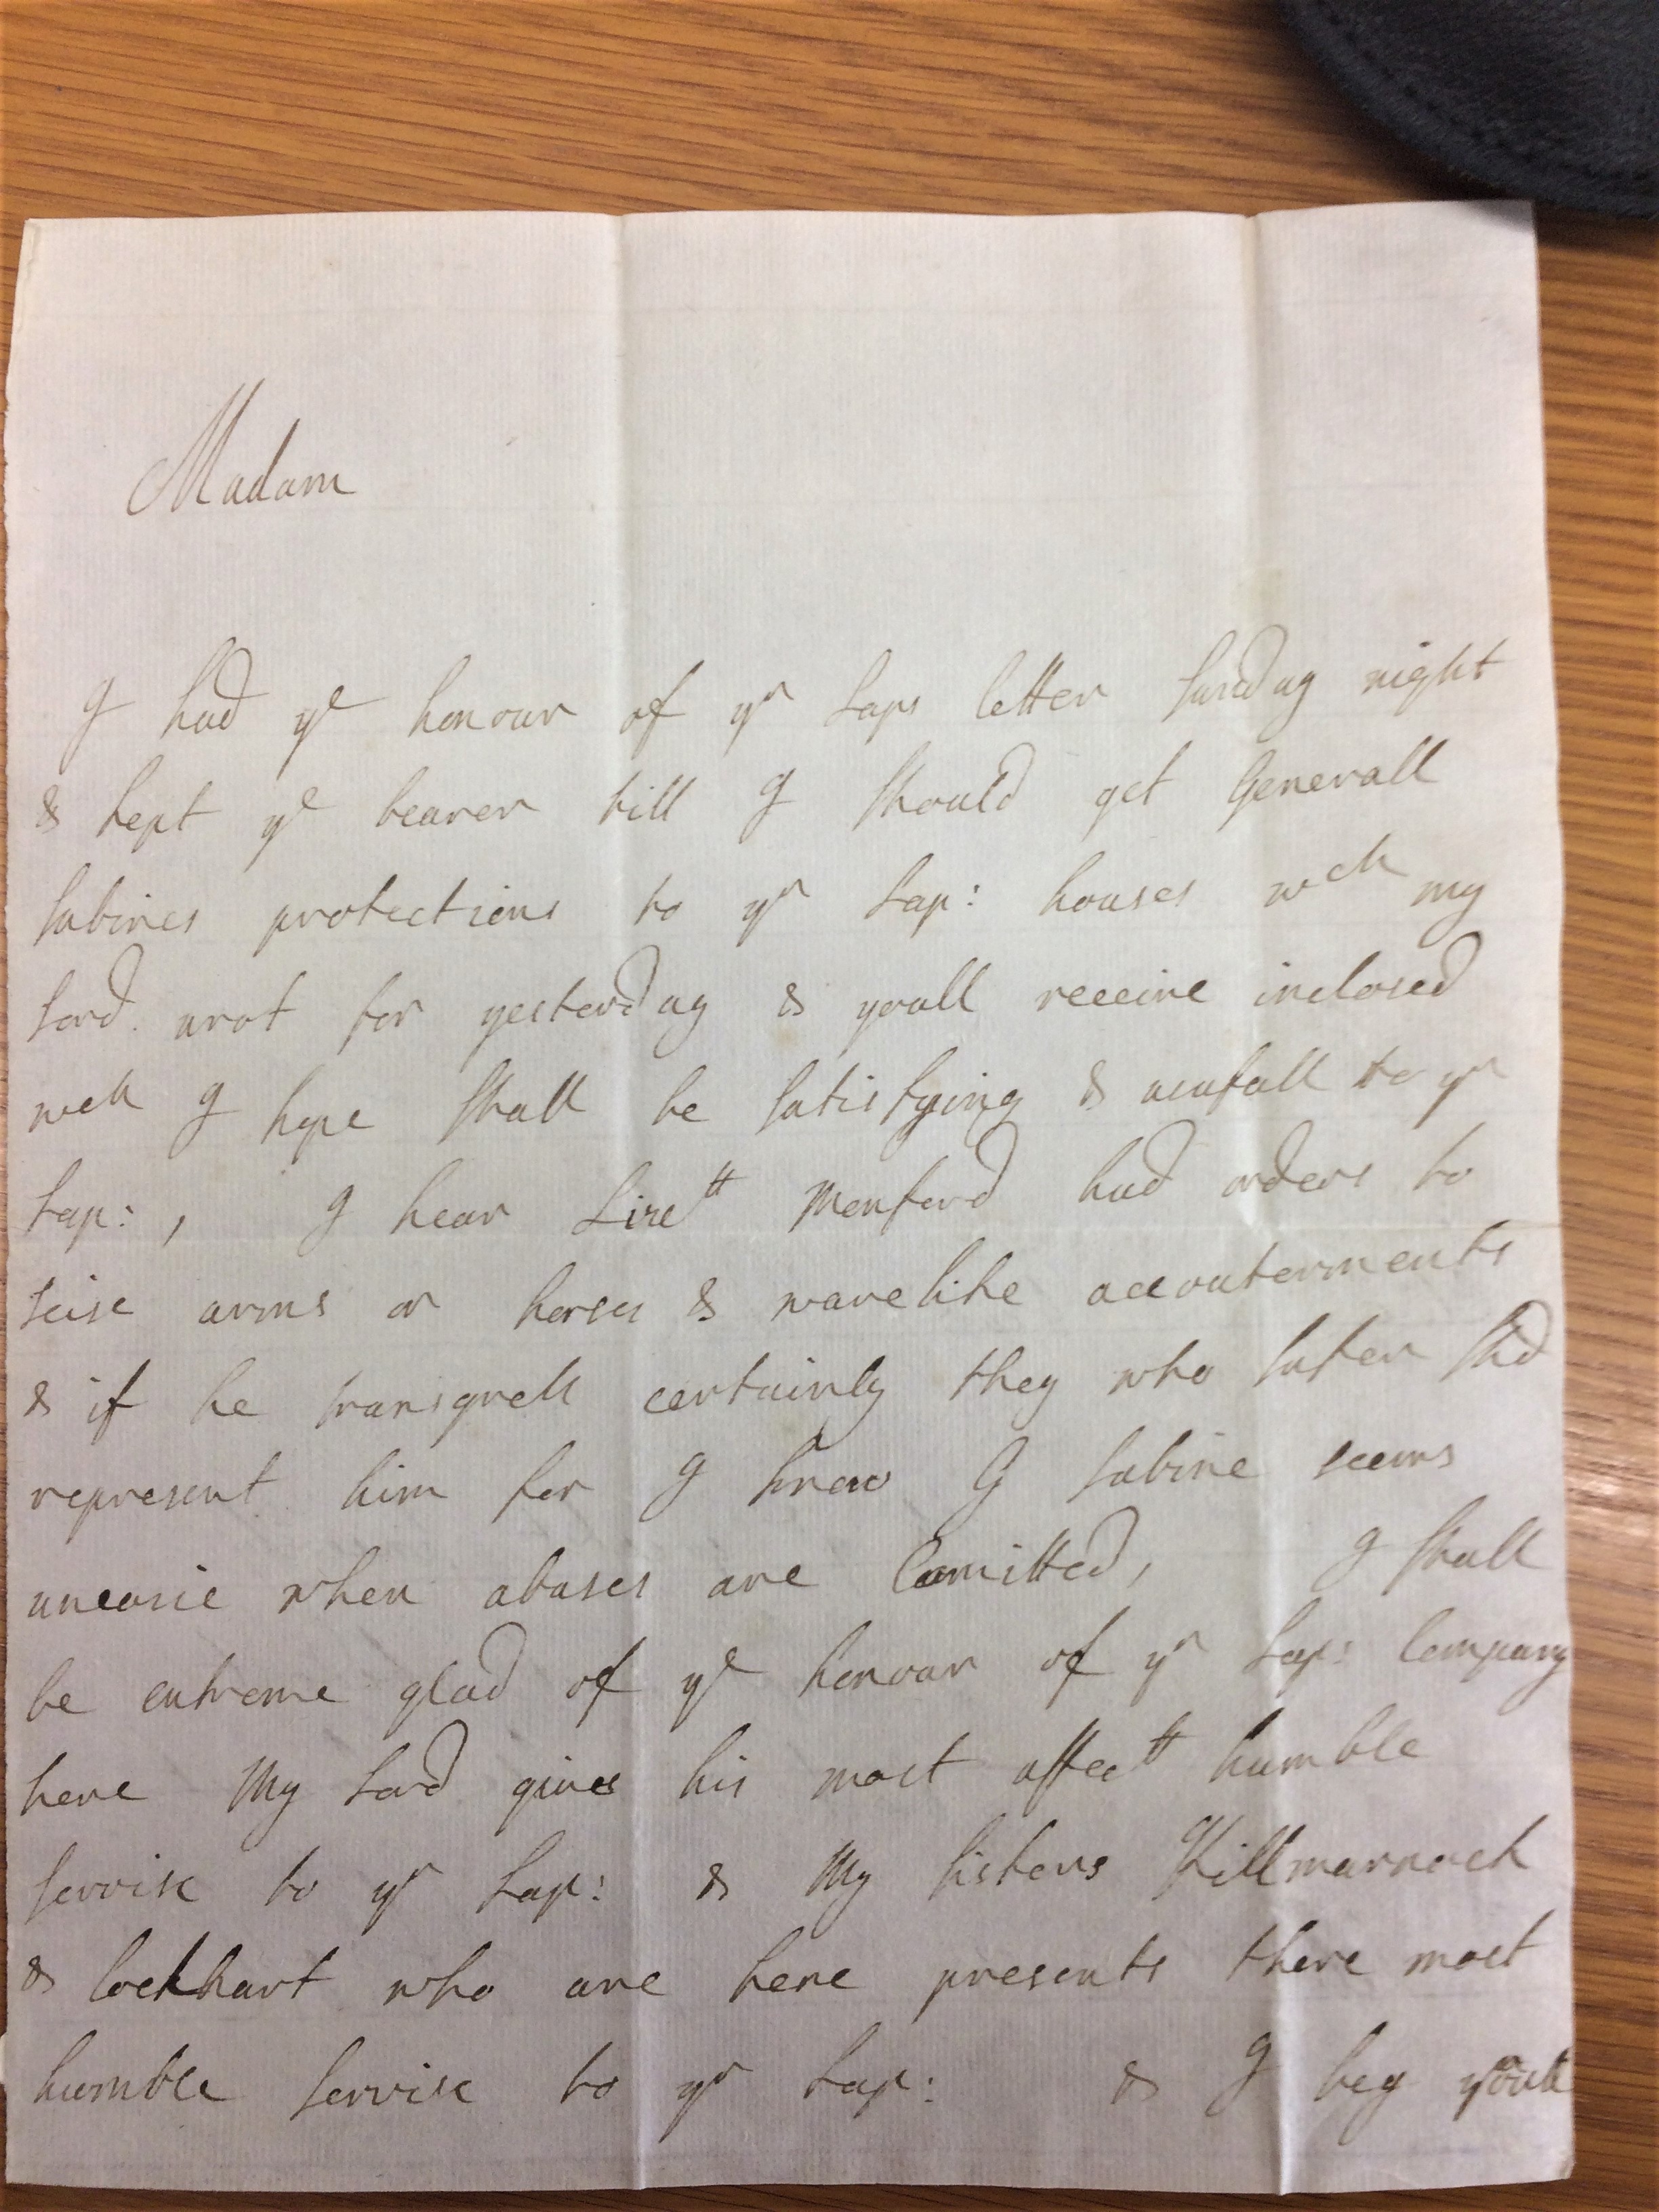 Madam
I had ye honour of yr Laps letter sunday night
& kept ye bearer till I should get Generall
Sabines protections to yr Lap: houses wch my
Lord wrot for yesterday & youll receive inclosed
wch I hope shall be satisfying & usefull to yr
Lap: , I hear Liett had orders to
seise arms or horses & warelike accouterments
& if he transgress certainly they who sufer shd
represent him for I know G Sabine seems
uneasie when abuses are Comitted, I shall
be extreme glad of ye honour of yr Lap: Company
here My Lord gives his most affectt humble
servise to yr Lap: & My sisters Killmarnock
& lockhart who are here presents there most
humble servise to yr Lap: & I beg youll